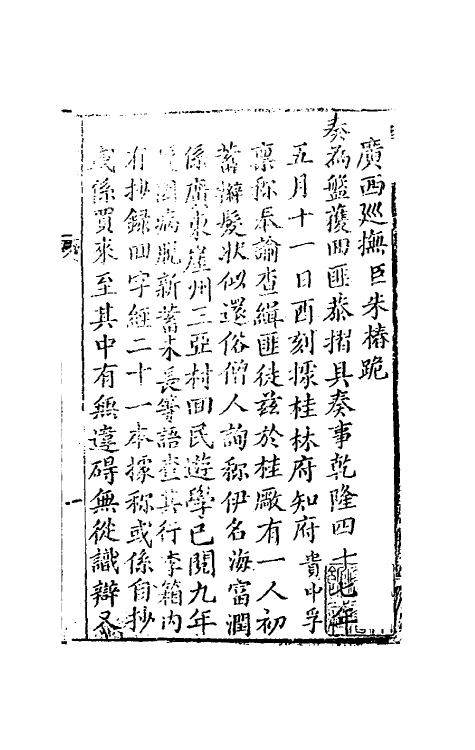 廣西廵撫臣朱椿跪
奏為盤獲回匪恭摺具奏事乾隆四十七年
五月十一日酉刻㨿桂林府知府貴中孚
禀称奉諭查緝匪徒兹於桂厰有一人初
蓄辮髮状似还俗僧人詢称伊名海富潤
係廣東崖州三亞村回民遊學已閱九年
因病脱新蓄未長等語查其行李箱内
有抄録回字經二十一本㨿称或係自抄
或係買來至其中有無違碍無從識辯又
一